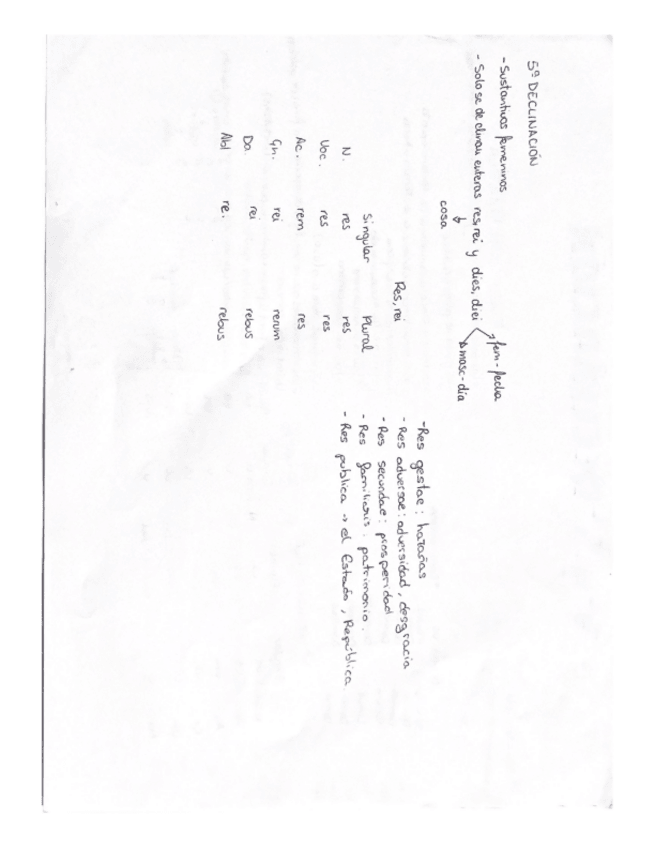 5ª DECLINACIÓN
- Sustantivos femeninos
- Solo se declinan enteras res, rei y dies, diei
cosa
fem - fecha
masc - día
Res, rei
Singular Plural
N. res res
Voc. res res
Ac. rem res
Gn. rei rerum
Da. rei rebus
Abl re. rebus
- Res gestae: hazañas
- Res adversae: adversidad, desgracia
- Res secundae: prosperidad
- Res familiaris: patrimonio.
- Res publica → el Estado, República